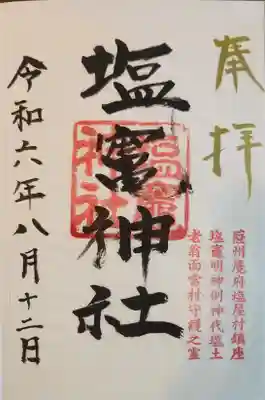 奉拝
薩州麑府塩屋村鎮座
塩竈明神倒神代塩土
老翁而當村守護之霊
塩竈神社
塩竈神社
令和六年八月十二日